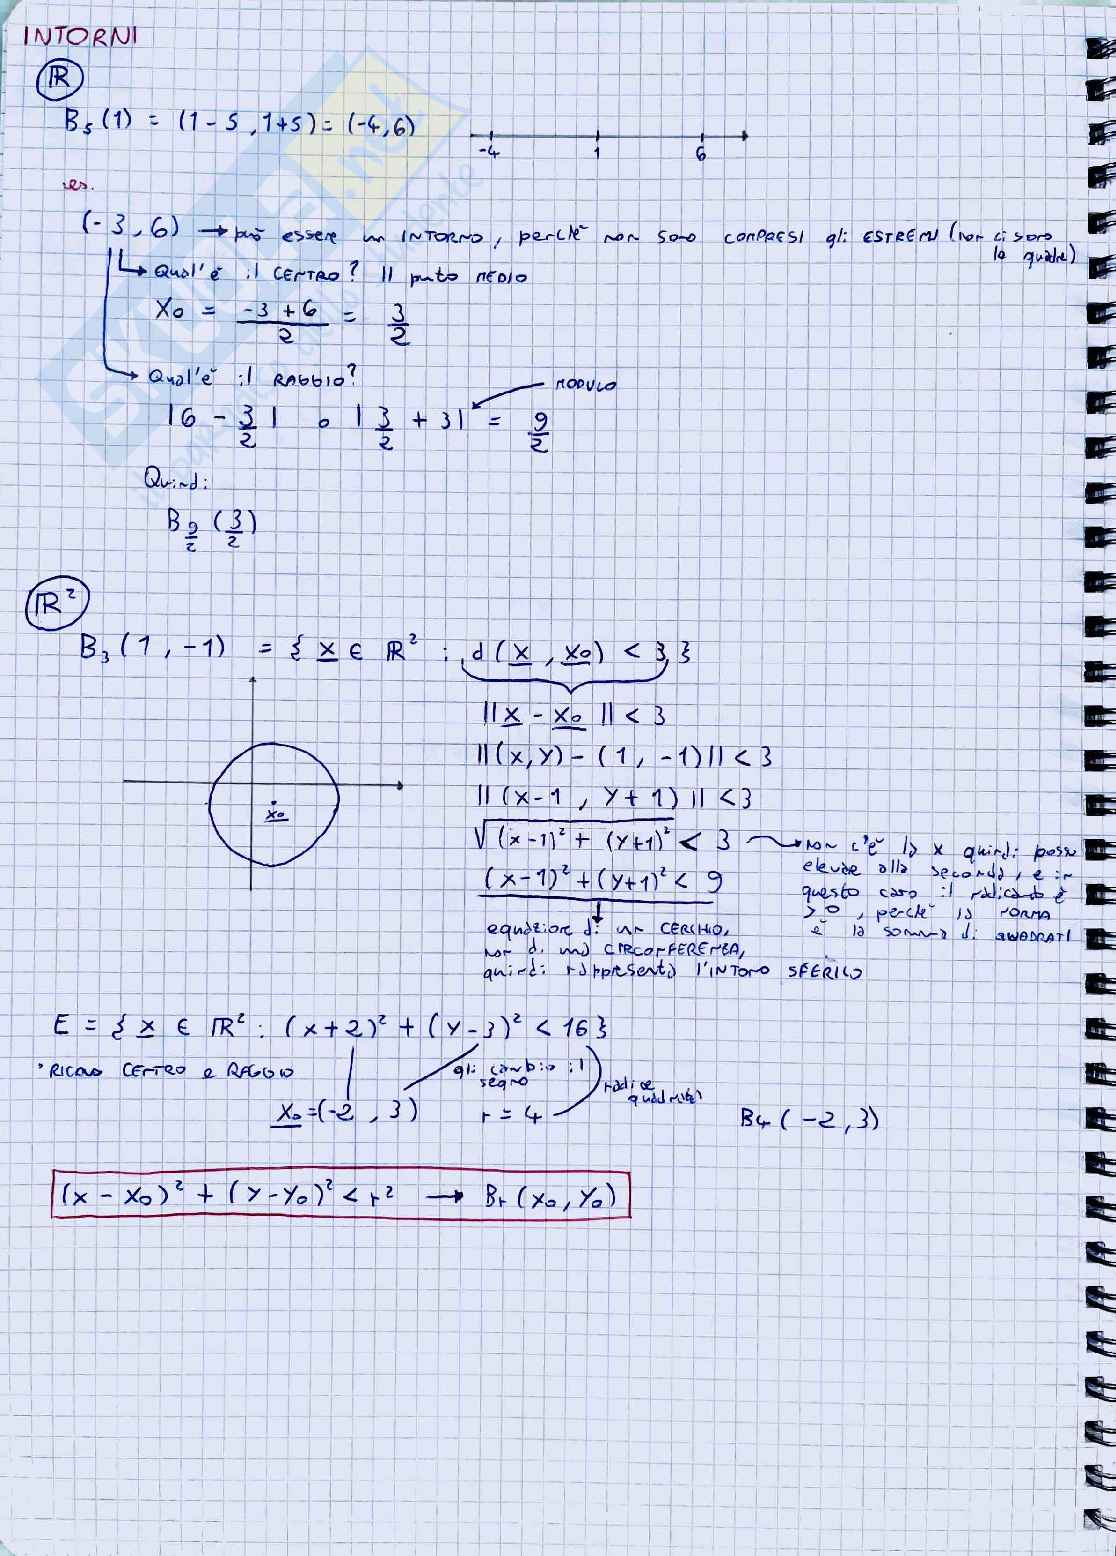 INTORNI
ℝ
B₅(1) = (1-5, 1+5) = (-4, 6)
-4 1 6
es.
(-3, 6) → può essere un INTORNO, perchè non sono COMPRESI gli ESTREMI (non ci sono
le quadre)
Qual'è il CENTRO? Il punto MEDIO
X₀ = (-3 + 6)/2 = 3/2
Qual'è il RAGGIO?
MODULO
|6 - 3/2| o |3/2 + 3| = 9/2
Quindi:
B_9/2 (3/2)
ℝ²
B₃(1, -1) = { x ∈ ℝ² : d(x, x₀) < 3 }
||x - x₀|| < 3
||(x,y) - (1, -1)|| < 3
||(x-1, y+1)|| < 3
x₀
√((x-1)² + (y+1)²) < 3 → non c'è la x quindi posso
elevare alla seconda, e in
questo caso il radicando è
>0, perchè la NORMA
è la somma di QUADRATI
(x-1)² + (y+1)² < 9
equazione di un CERCHIO,
non di una CIRCONFERENZA,
quindi rappresenta l'INTORNO SFERICO
E = { x ∈ ℝ² : (x+2)² + (y-3)² < 16 }
• RICAVO CENTRO e RAGGIO
gli cambio il
segno
radice
quadrata
x₀ = (-2, 3) r = 4 B₄(-2, 3)
(x - x₀)² + (y - y₀)² < r² → Br(x₀, y₀)